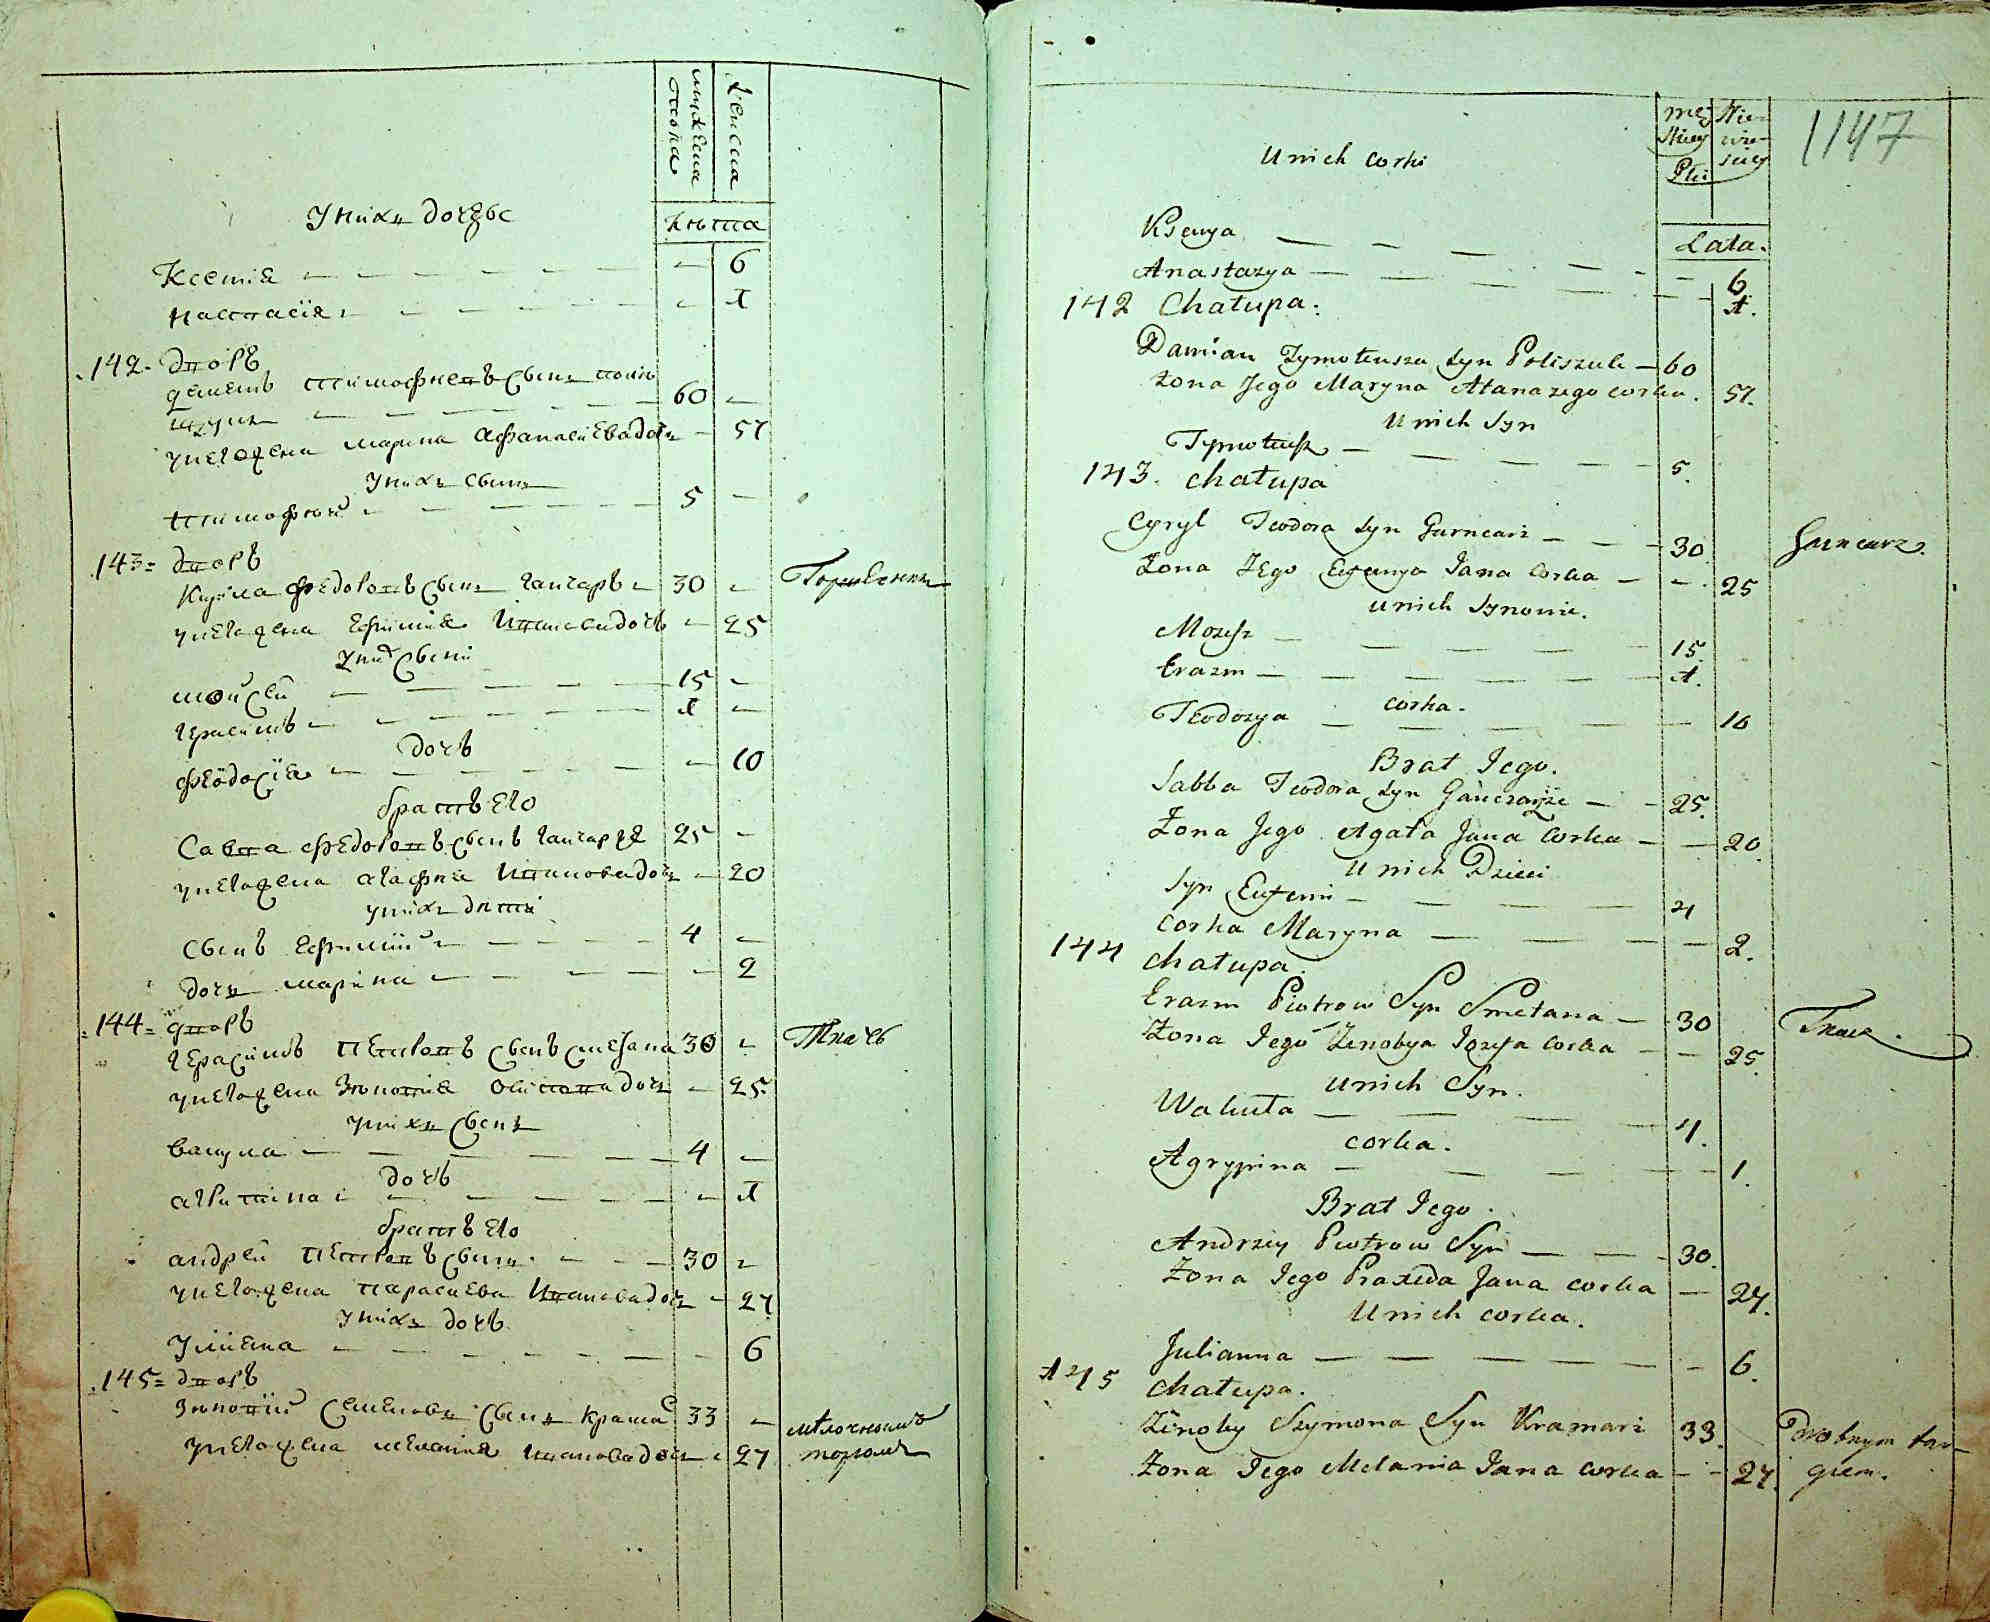 мужеска
пола
женска
лѣта
у них дочерѣ
Ксения — 6
настасия — 1
142 дворъ
демьянъ тимофеевъ сынъ полѣ
щукъ — 60
у него жена марина афанасиева дочь — 57
у них сынъ
тимофей — 5
143 дворъ
Кирила федоровъ сынъ ганчаръ — 30
у него жена ефимия Иванова дочъ — 25
у них сыни
мойсей — 15
герасимъ — 1
дочъ
феодосия — 10
братъ его
Савва федоровъ сынъ ганчаръ — 25
у него жена агафия Иванова дочь — 20
у них дети
сынъ ефимий — 4
дочь марина — 2
144 дворъ
герасимъ петровъ сынъ сметана 30 Ткачь
у него жена Зиновия осипова дочь — 25
у них сынъ
вакула — 4
дочъ
агрипина — 1
братъ его
андрей петровъ сынъ — 30
у него жена парасиева Иванова дочь — 27
у них дочъ
улияна — 6
145 дворъ
Зиновий семеновъ сынъ крама 33 мелочнымъ
у него жена мелания иванова дочь — 27 торгомъ
1147
męz Nie-
skiey wie-
sciey
Płci
Lata.
U nich corki
Ksenya — 6
Anastazya — 1.
142 Chałupa.
Damian Tymoteusza syn Poliszuk — 60
żona Jego Maryna Atanazego corka. 57.
U nich Syn
Tymoteusz — 5.
143. chałupa
Cyryl Teodora syn Garncarz — 30 Garncarz.
Żona Jego Eugenya Jana corka — 25
u nich synowie.
Mozesz — 15
Erazm — 1.
corka.
Teodozya — 10
Brat Jego.
Sabba Teodora syn Ganczarze — 25.
Żona Jego Agata Jana corka — 20
U nich Dzieci
Syn Eufemi — 4
Corka Maryna — 2.
144 chałupa.
Erazm Piotrow Syn Smetana — 30 Tkacz.
Żona Jego Zenobya Jozefa corka — 25.
U nich Syn.
Wakuła — 4.
corka.
Agrypina — 1.
Brat Jego.
Andrzey Piotrow Syn — 30.
Żona Jego Praxeda Jana corka — 27.
U nich corka.
Julianna — 6.
145 chałupa.
Zenoby Szymona Syn Kramarz 33. Drobnym tar-
Żona Jego Melania Jana corka — 27. giem.